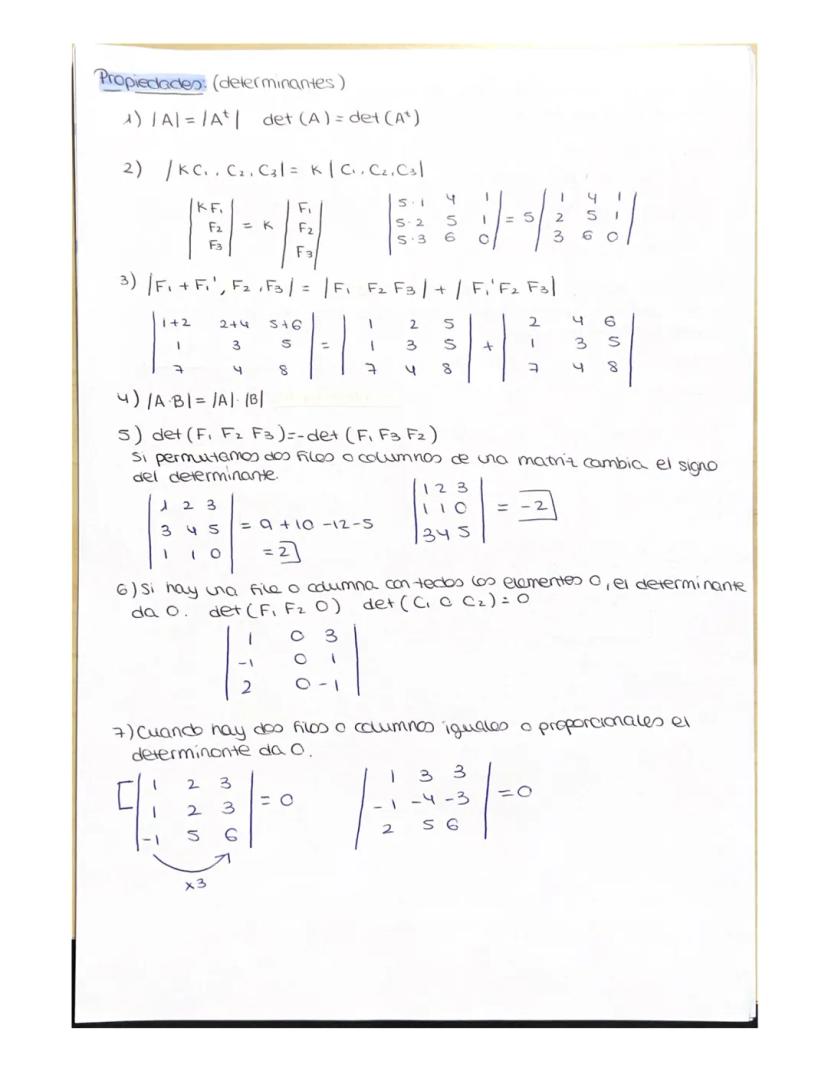 Propiedades: (determinantes)
1) |A| = |Aᵗ|   det (A) = det (Aᵗ)
2) |KC₁, C₂, C₃| = K |C₁, C₂, C₃|
|KF₁|     |F₁|     |5·1 4 1|     |1 4 1|
|F₂| = K |F₂|     |5·2 5 1| = 5 |2 5 1|
|F₃|     |F₃|     |5·3 6 0|     |3 6 0|
3) |F₁ + F₁', F₂, F₃| = |F₁ F₂ F₃| + |F₁' F₂ F₃|
|1+2 2+4 5+6|   |1 2 5|   |2 4 6|
|1 3 5| = |1 3 5| + |1 3 5|
|7 4 8|   |7 4 8|   |7 4 8|
4) |A·B| = |A|·|B|
5) det (F₁ F₂ F₃) = -det (F₁ F₃ F₂)
Si permutamos dos filas o columnas de una matriz cambia el signo
del determinante.
|1 2 3|     |1 2 3|
|3 4 5| = 9 + 10 - 12 - 5     |1 1 0| = -2
|1 1 0| = 2     |3 4 5|
6) Si hay una fila o columna con todos los elementos 0, el determinante
da 0. det (F₁ F₂ 0)   det (C₁ 0 C₂) = 0
|1 0 3|
|-1 0 1|
|2 0 -1|
7) Cuando hay dos filas o columnas iguales o proporcionales el
determinante da 0.
[|1 2 3|     |1 3 3|
|1 2 3| = 0     |-1 -4 -3| = 0
|-1 5 6|     |2 5 6|
x3